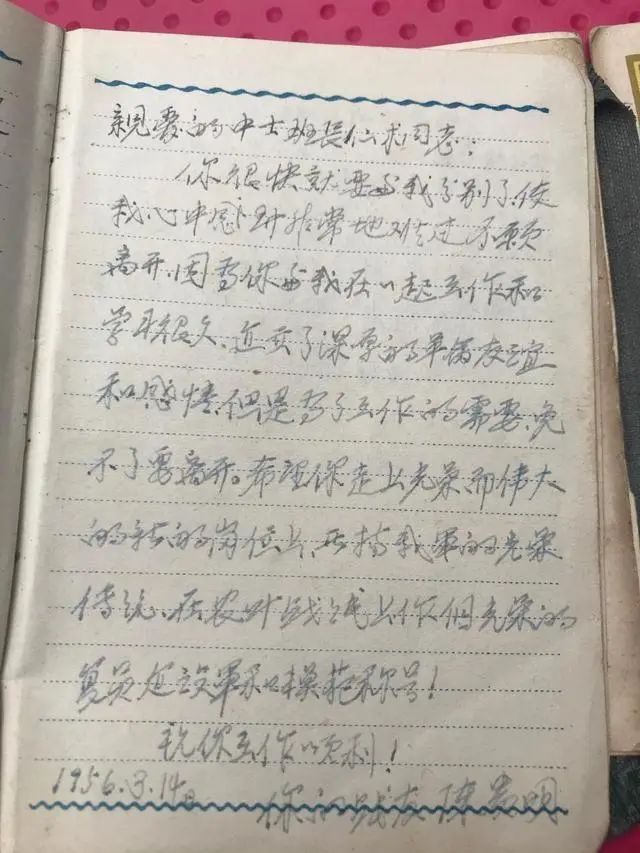 親爱的中士班長仁求同志：
你很快就要与我分别了，使
我心中感到非常地难过不願
离开，因为你与我在一起工作和
学习很久，建立了深厚的革命友谊
和感情，但是为了工作的需要，免
不了要离开。希望你走上光荣而伟大
的新的岗位上，发扬我軍的光荣
传统，在农业战线上作個光荣的
复员建设軍和模范称号！
祝你工作顺利！
1956.3.14日
你的战友 陈 明